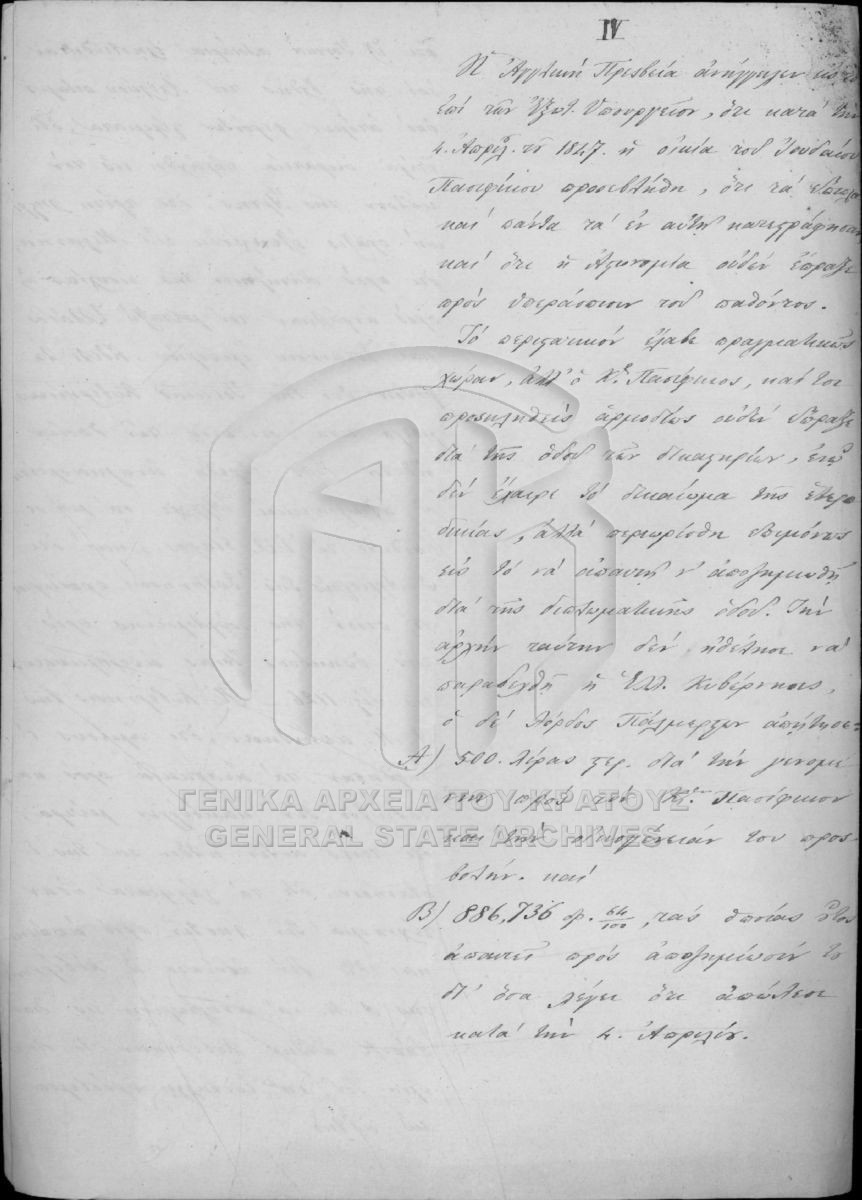 IV
Ἡ Ἀγγλικὴ Πρεσβεία ἀνήγγειλεν εἰς τὸ
ἐπὶ τῶν Ἐξωτ. Ὑπουργεῖον, ὅτι κατὰ τὴν
4. Ἀπριλ. τοῦ 1847. ἡ οἰκία τοῦ Ἰουδαίου
Πασιφίκου προσεβλήθη, ὅτι τὰ ἔπιπλα
καὶ πάντα τὰ ἐν αὐτῇ
καὶ ὅτι ἡ Ἀστυνομία οὐδὲν ἔπραξε
πρὸς ὑπεράσπισιν τοῦ παθόντος.
Τὸ περιστατικὸν ἔλαβε πραγματικῶς
χώραν, ἀλλ' ὁ Κος Πασίφικος, καί τοι
προσκληθεὶς ἁρμοδίως οὐδὲν ἔπραξε
διὰ τῆς ὁδοῦ τῶν δικαστηρίων, ἐνῷ
δὲν ἔχαιρε τὸ δικαίωμα τῆς ἑτερο
δικίας, ἀλλὰ περιωρίσθη ἐπιμόνως
εἰς τὸ νὰ ἀπαιτῇ ν' ἀποζημιωθῇ
διὰ τῆς διπλωματικῆς ὁδοῦ. Τὴν
ἀρχὴν ταύτην δὲν ἠθέλησε νὰ
παραδεχθῇ ἡ Ἑλλ. Κυβέρνησις,
ὁ δὲ Λόρδος Πάλμερστων ἀπῄτησε:
Α) 500. λίρας στερ. διὰ τὴν γενομέ
νην πρὸς τὸν Κον Πασίφικον
καὶ τὴν οἰκογένειάν του προσ
βολήν. καὶ
Β) 886,736 δρ. 64/100, τὰς ὁποίας οὗτος
ἀπαιτεῖ πρὸς ἀποζημίωσίν του
δι' ὅσα λέγει ὅτι ἀπώλεσε
κατὰ τὴν 4. Ἀπριλίου.
ΓΕΝΙΚΑ ΑΡΧΕΙΑ ΤΟΥ ΚΡΑΤΟΥΣ
GENERAL STATE ARCHIVES